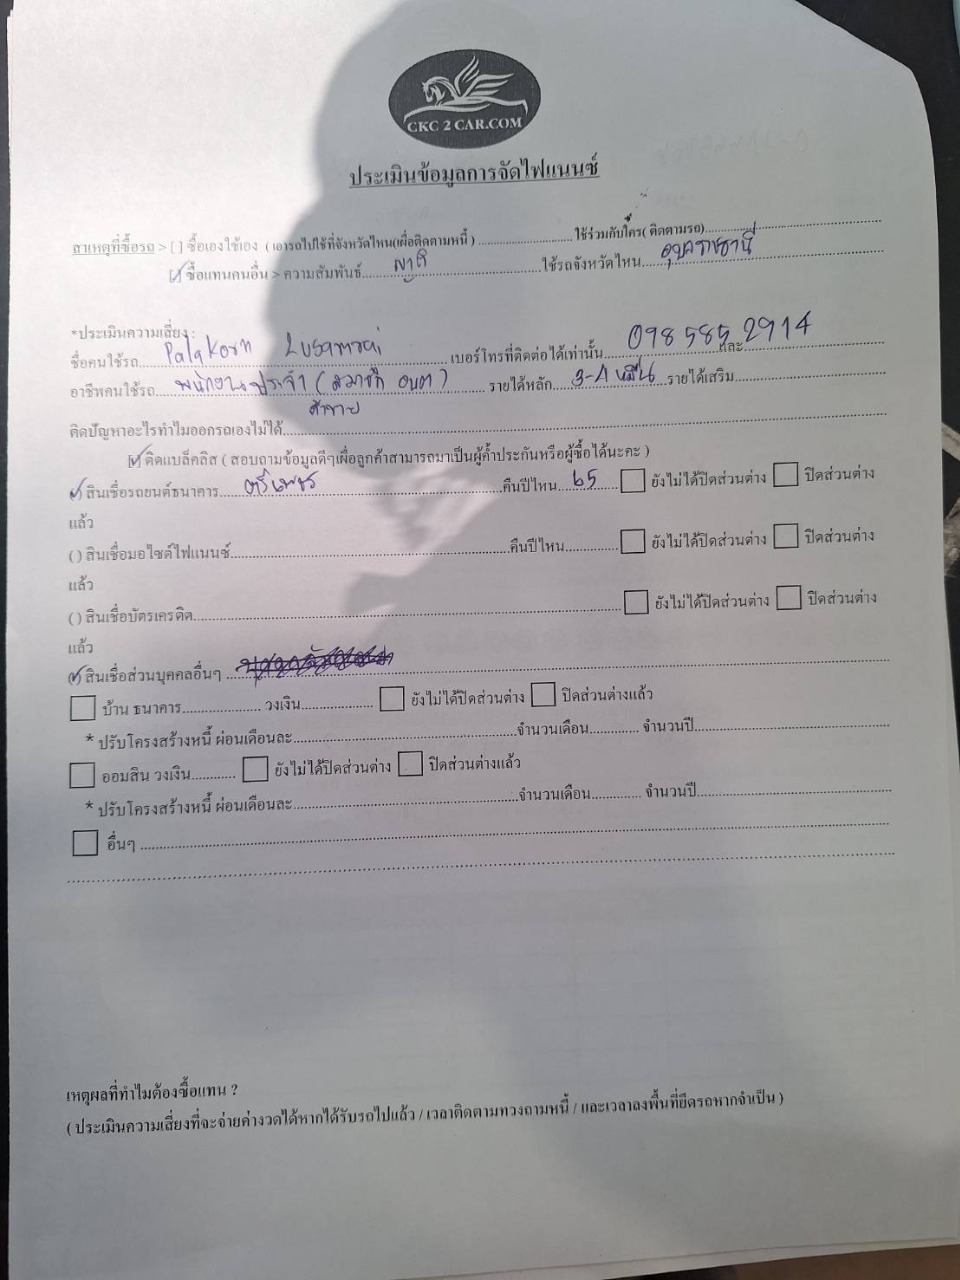 CKC 2 CAR.COM
ประเมินข้อมูลการจัดไฟแนนซ์
สาเหตุที่ซื้อรถ > [ ] ซื้อเองใช้เอง ( เอารถไปใช้ที่จังหวัดไหน(เผื่อติดตามหนี้ ) ........................... ใช้ร่วมกับใคร( ติดตามรถ)...........................
[✓] ซื้อแทนคนอื่น > ความสัมพันธ์.....ญาติ.....ใช้รถจังหวัดไหน.....อุบลราชธานี
*ประเมินความเสี่ยง :
ชื่อคนใช้รถ.....Palakorn.....เบอร์โทรที่ติดต่อได้เท่านั้น.....098 585 2914 และ
อาชีพคนใช้รถ.....พนักงานประจำ (สมาชิก อบต).....รายได้หลัก.....3-4 หมื่น.....รายได้เสริม...........................
ค้าขาย
ติดปัญหาอะไรทำไมออกรถเองไม่ได้...........................
[✓] ติดแบล็คลิส ( สอบถามข้อมูลดีๆเผื่อลูกค้าสามารถมาเป็นผู้ค้ำประกันหรือผู้ซื้อได้นะคะ )
(✓) สินเชื่อรถยนต์ธนาคาร.....ตรีเพชร.....คืนปีไหน.....65..... ยังไม่ได้ปิดส่วนต่าง ปิดส่วนต่าง
แล้ว
() สินเชื่อมอไซต์ไฟแนนซ์...........................คืนปีไหน............. ยังไม่ได้ปิดส่วนต่าง ปิดส่วนต่าง
แล้ว
() สินเชื่อบัตรเครดิต........................... ยังไม่ได้ปิดส่วนต่าง ปิดส่วนต่าง
แล้ว
(✓) สินเชื่อส่วนบุคคลอื่นๆ ...........................
บ้าน ธนาคาร..................... วงเงิน................... ยังไม่ได้ปิดส่วนต่าง ปิดส่วนต่างแล้ว
* ปรับโครงสร้างหนี้ ผ่อนเดือนละ...........................จำนวนเดือน............. จำนวนปี...........................
ออมสิน วงเงิน............ ยังไม่ได้ปิดส่วนต่าง ปิดส่วนต่างแล้ว
* ปรับโครงสร้างหนี้ ผ่อนเดือนละ...........................จำนวนเดือน............. จำนวนปี...........................
อื่นๆ ...........................
เหตุผลที่ทำไมต้องซื้อแทน ?
( ประเมินความเสี่ยงที่จะจ่ายค่างวดได้หากได้รับรถไปแล้ว / เวลาติดตามทวงถามหนี้ / และเวลาลงพื้นที่ยึดรถหากจำเป็น )